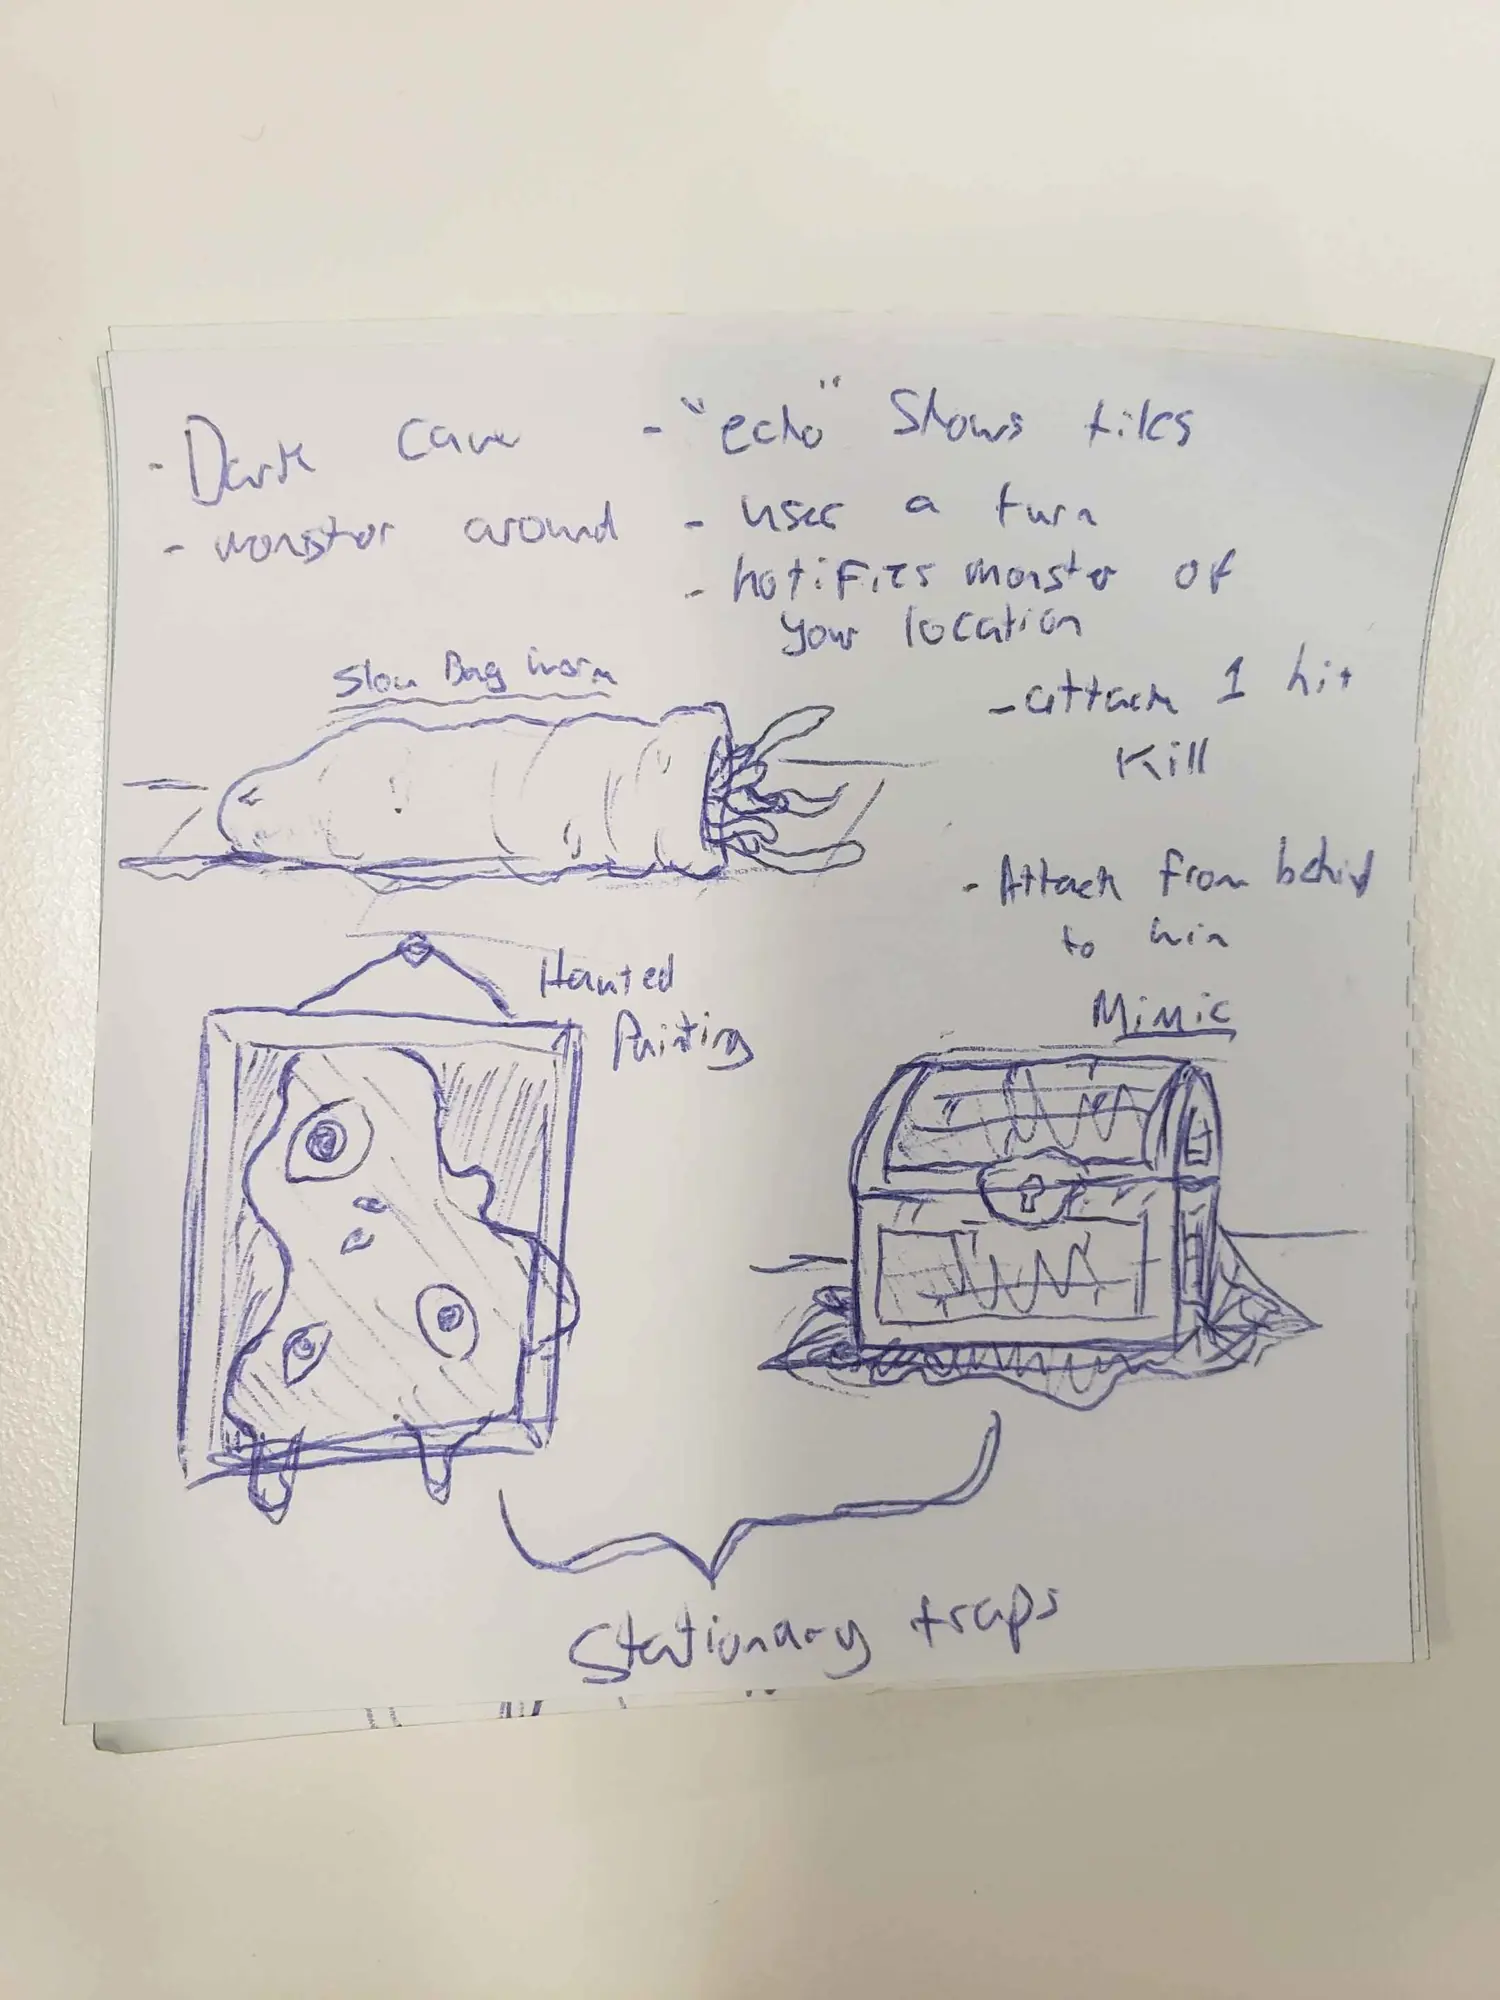 - Dark cave
- monster around
- "echo" shows tiles
- uses a turn
- notifies monster of
your location
- attack 1 hit
kill
Slow Bag worm
- Attack from behind
to win
Hanted
Painting
Mimic
Stationary traps